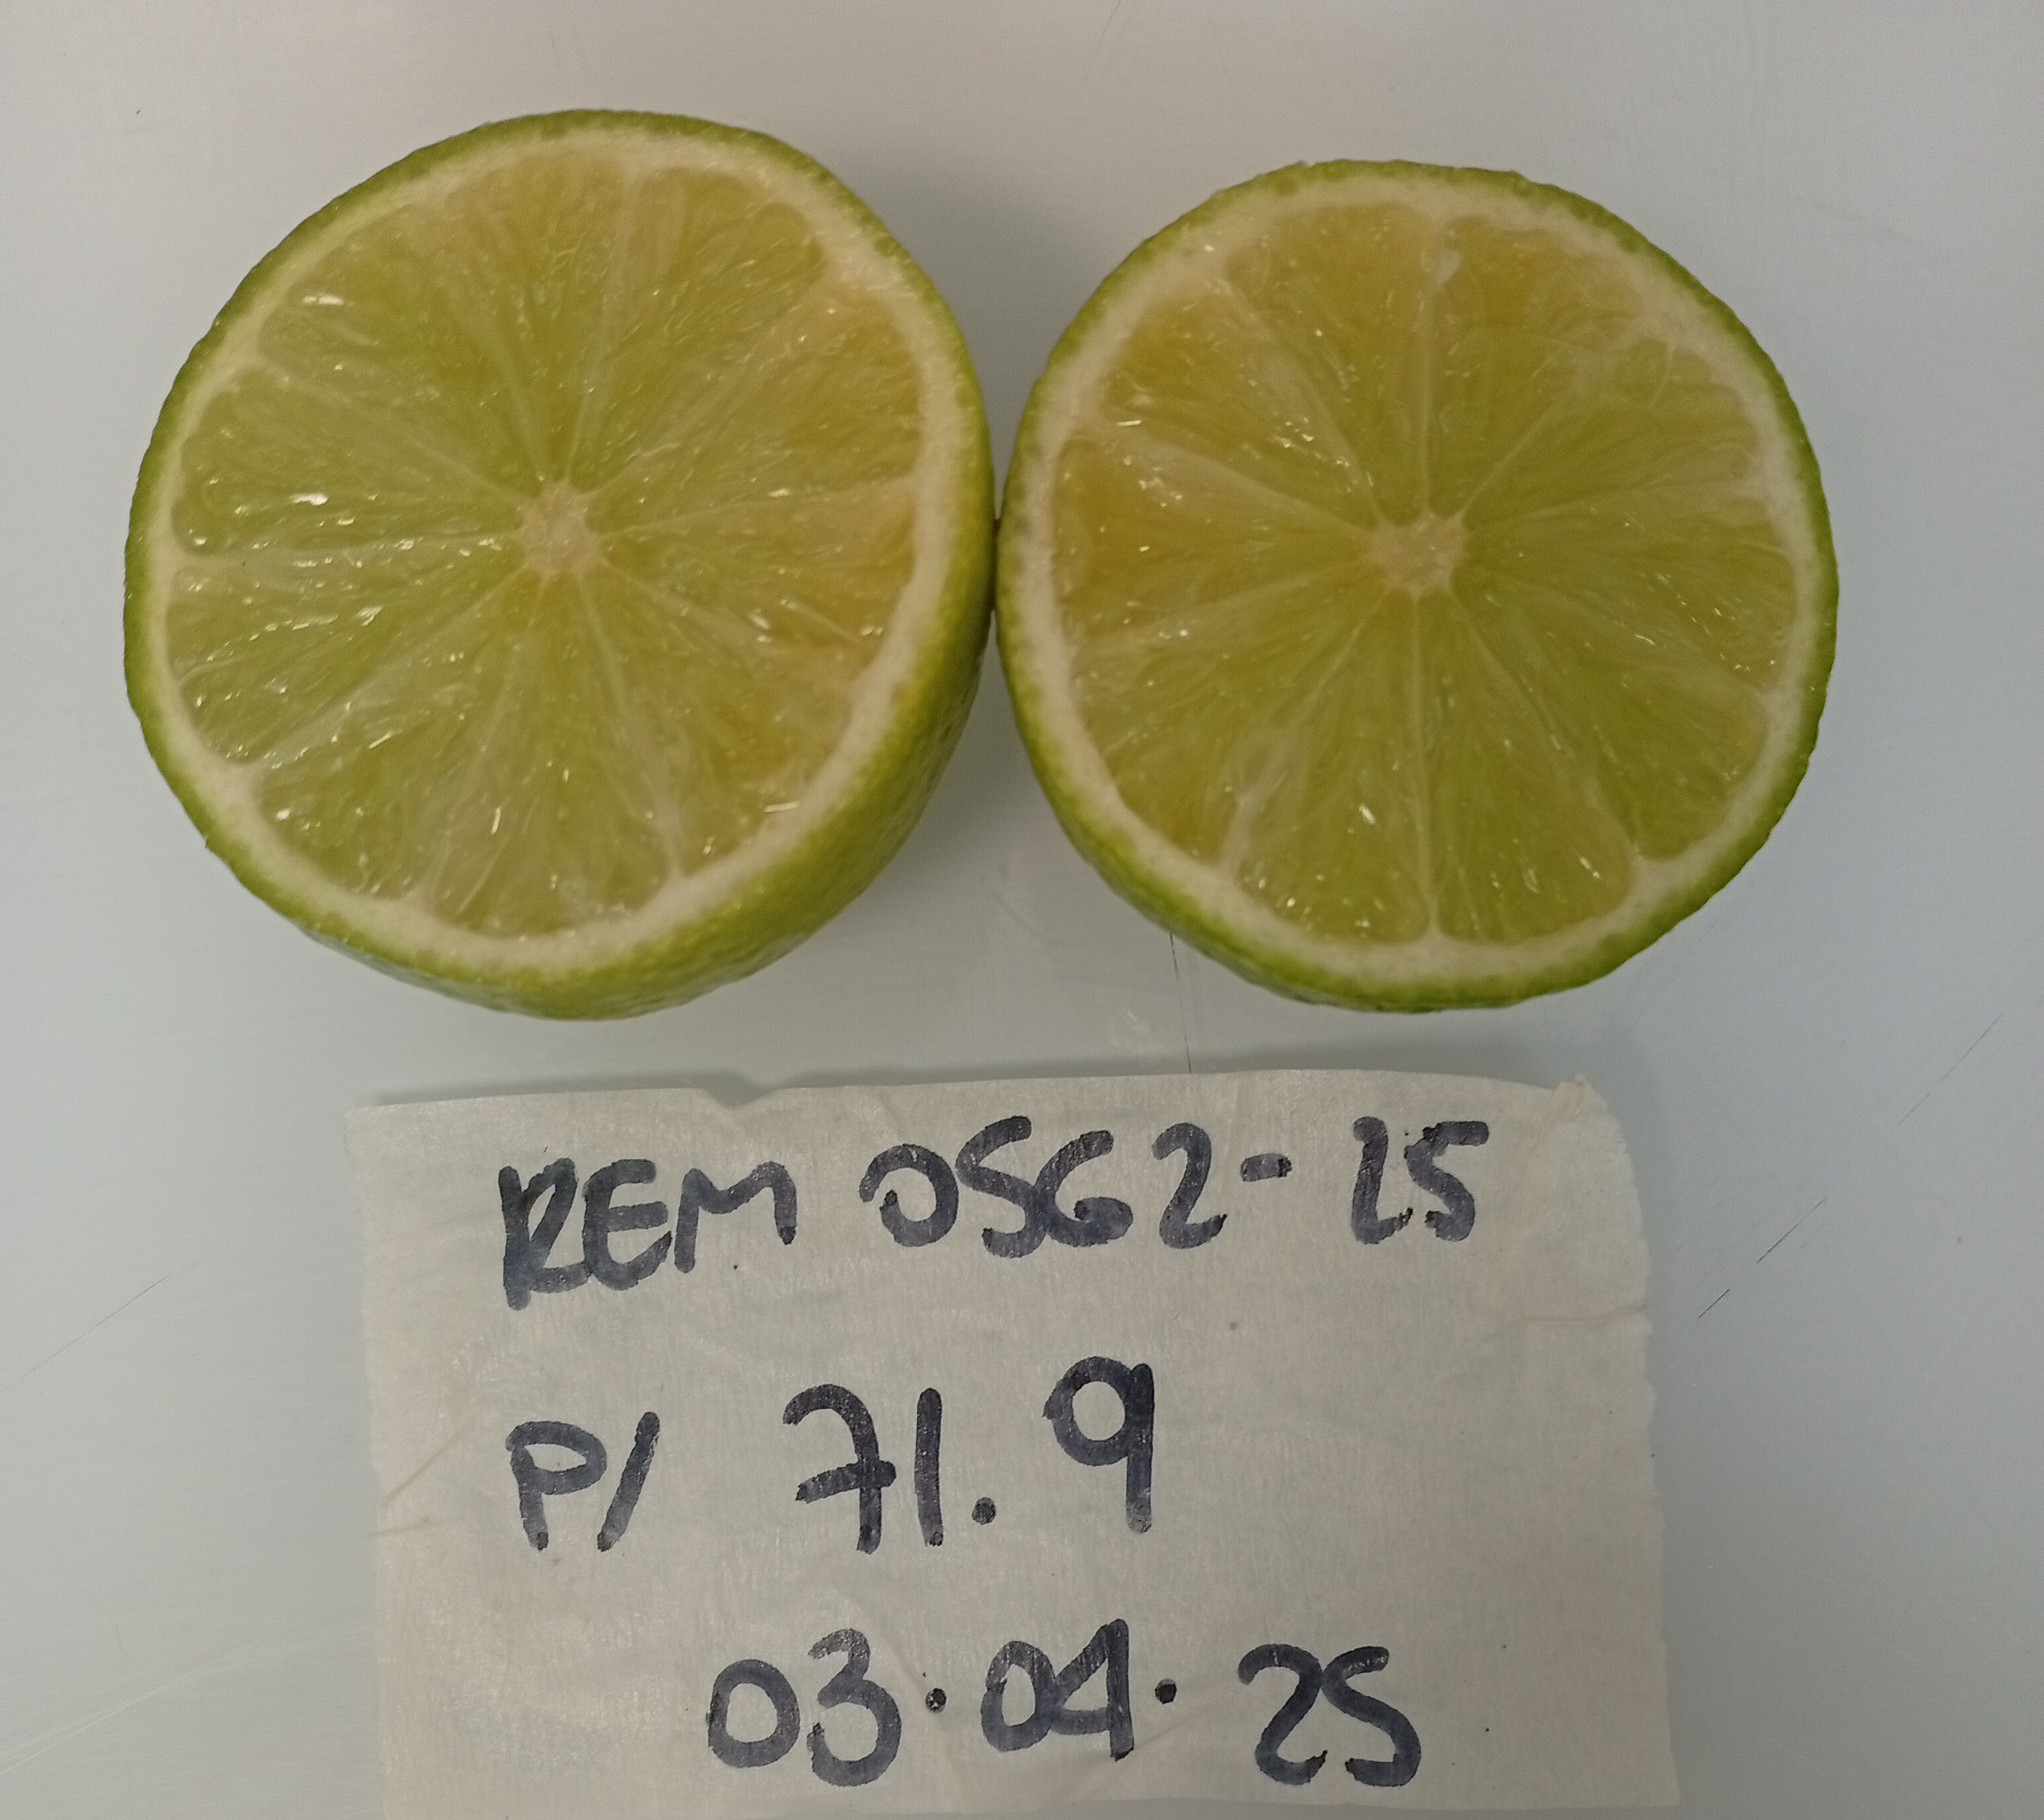 REM 0562-25
P/ 71.9
03.04.25